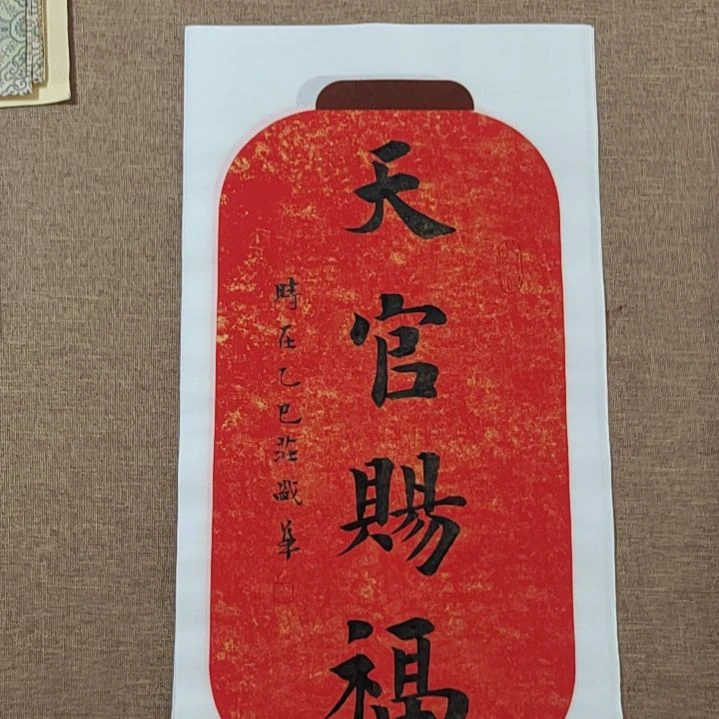 天官賜福
時在乙巳莊